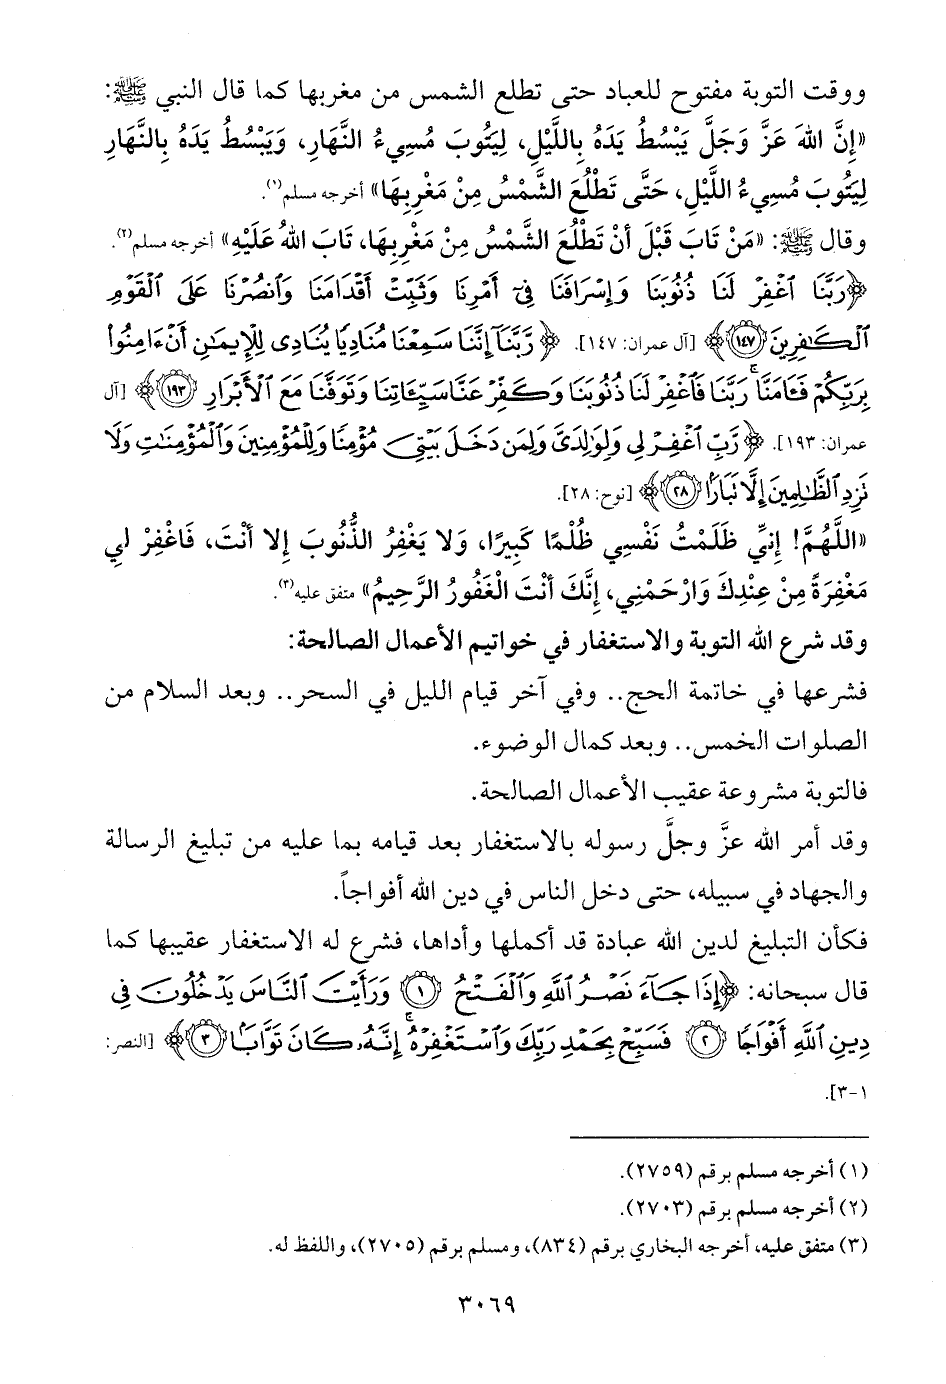 ووقت التوبة مفتوح للعباد حتى تطلع الشمس من مغربها كما قال النبي ﷺ:
«إِنَّ اللهَ عَزَّ وَجَلَّ يَبْسُطُ يَدَهُ بِاللَّيْلِ، لِيَتُوبَ مُسِيءُ النَّهَارِ، وَيَبْسُطُ يَدَهُ بِالنَّهَارِ
لِيَتُوبَ مُسِيءُ اللَّيْلِ، حَتَّى تَطْلُعَ الشَّمْسُ مِنْ مَغْرِبِهَا» أخرجه مسلم(١).
وقال ﷺ: «مَنْ تَابَ قَبْلَ أَنْ تَطْلُعَ الشَّمْسُ مِنْ مَغْرِبِهَا، تَابَ اللهُ عَلَيْهِ» أخرجه مسلم(٢).
﴿رَبَّنَا ٱغْفِرْ لَنَا ذُنُوبَنَا وَإِسْرَافَنَا فِىٓ أَمْرِنَا وَثَبِّتْ أَقْدَامَنَا وَٱنصُرْنَا عَلَى ٱلْقَوْمِ
ٱلْكَـٰفِرِينَ ١٤٧﴾ [آل عمران: ١٤٧]. ﴿رَّبَّنَآ إِنَّنَا سَمِعْنَا مُنَادِيًا يُنَادِى لِلْإِيمَـٰنِ أَنْ ءَامِنُوا۟
بِرَبِّكُمْ فَـَٔامَنَّا ۚ رَبَّنَا فَٱغْفِرْ لَنَا ذُنُوبَنَا وَكَفِّرْ عَنَّا سَيِّـَٔاتِنَا وَتَوَفَّنَا مَعَ ٱلْأَبْرَارِ ١٩٣﴾ [آل
عمران: ١٩٣]. ﴿رَّبِّ ٱغْفِرْ لِى وَلِوَٰلِدَىَّ وَلِمَن دَخَلَ بَيْتِىَ مُؤْمِنًا وَلِلْمُؤْمِنِينَ وَٱلْمُؤْمِنَـٰتِ وَلَا
تَزِدِ ٱلظَّـٰلِمِينَ إِلَّا تَبَارًۢا ٢٨﴾ [نوح: ٢٨].
«اللَّهُمَّ! إِنِّي ظَلَمْتُ نَفْسِي ظُلْمًا كَبِيرًا، وَلا يَغْفِرُ الذُّنُوبَ إِلا أَنْتَ، فَاغْفِرْ لِي
مَغْفِرَةً مِنْ عِنْدِكَ وَارْحَمْنِي، إِنَّكَ أَنْتَ الْغَفُورُ الرَّحِيمُ» متفق عليه(٣).
وقد شرع الله التوبة والاستغفار في خواتيم الأعمال الصالحة:
فشرعها في خاتمة الحج.. وفي آخر قيام الليل في السحر.. وبعد السلام من
الصلوات الخمس.. وبعد كمال الوضوء.
فالتوبة مشروعة عقيب الأعمال الصالحة.
وقد أمر الله عزَّ وجلَّ رسوله بالاستغفار بعد قيامه بما عليه من تبليغ الرسالة
والجهاد في سبيله، حتى دخل الناس في دين الله أفواجاً.
فكأن التبليغ لدين الله عبادة قد أكملها وأداها، فشرع له الاستغفار عقيبها كما
قال سبحانه: ﴿إِذَا جَآءَ نَصْرُ ٱللَّهِ وَٱلْفَتْحُ ١ وَرَأَيْتَ ٱلنَّاسَ يَدْخُلُونَ فِى
دِينِ ٱللَّهِ أَفْوَاجًا ٢ فَسَبِّحْ بِحَمْدِ رَبِّكَ وَٱسْتَغْفِرْهُ ۚ إِنَّهُۥ كَانَ تَوَّابًۢا ٣﴾ [النصر:
١-٣].
(١) أخرجه مسلم برقم (٢٧٥٩).
(٢) أخرجه مسلم برقم (٢٧٠٣).
(٣) متفق عليه، أخرجه البخاري برقم (٨٣٤)، ومسلم برقم (٢٧٠٥)، واللفظ له.
٣٠٦٩